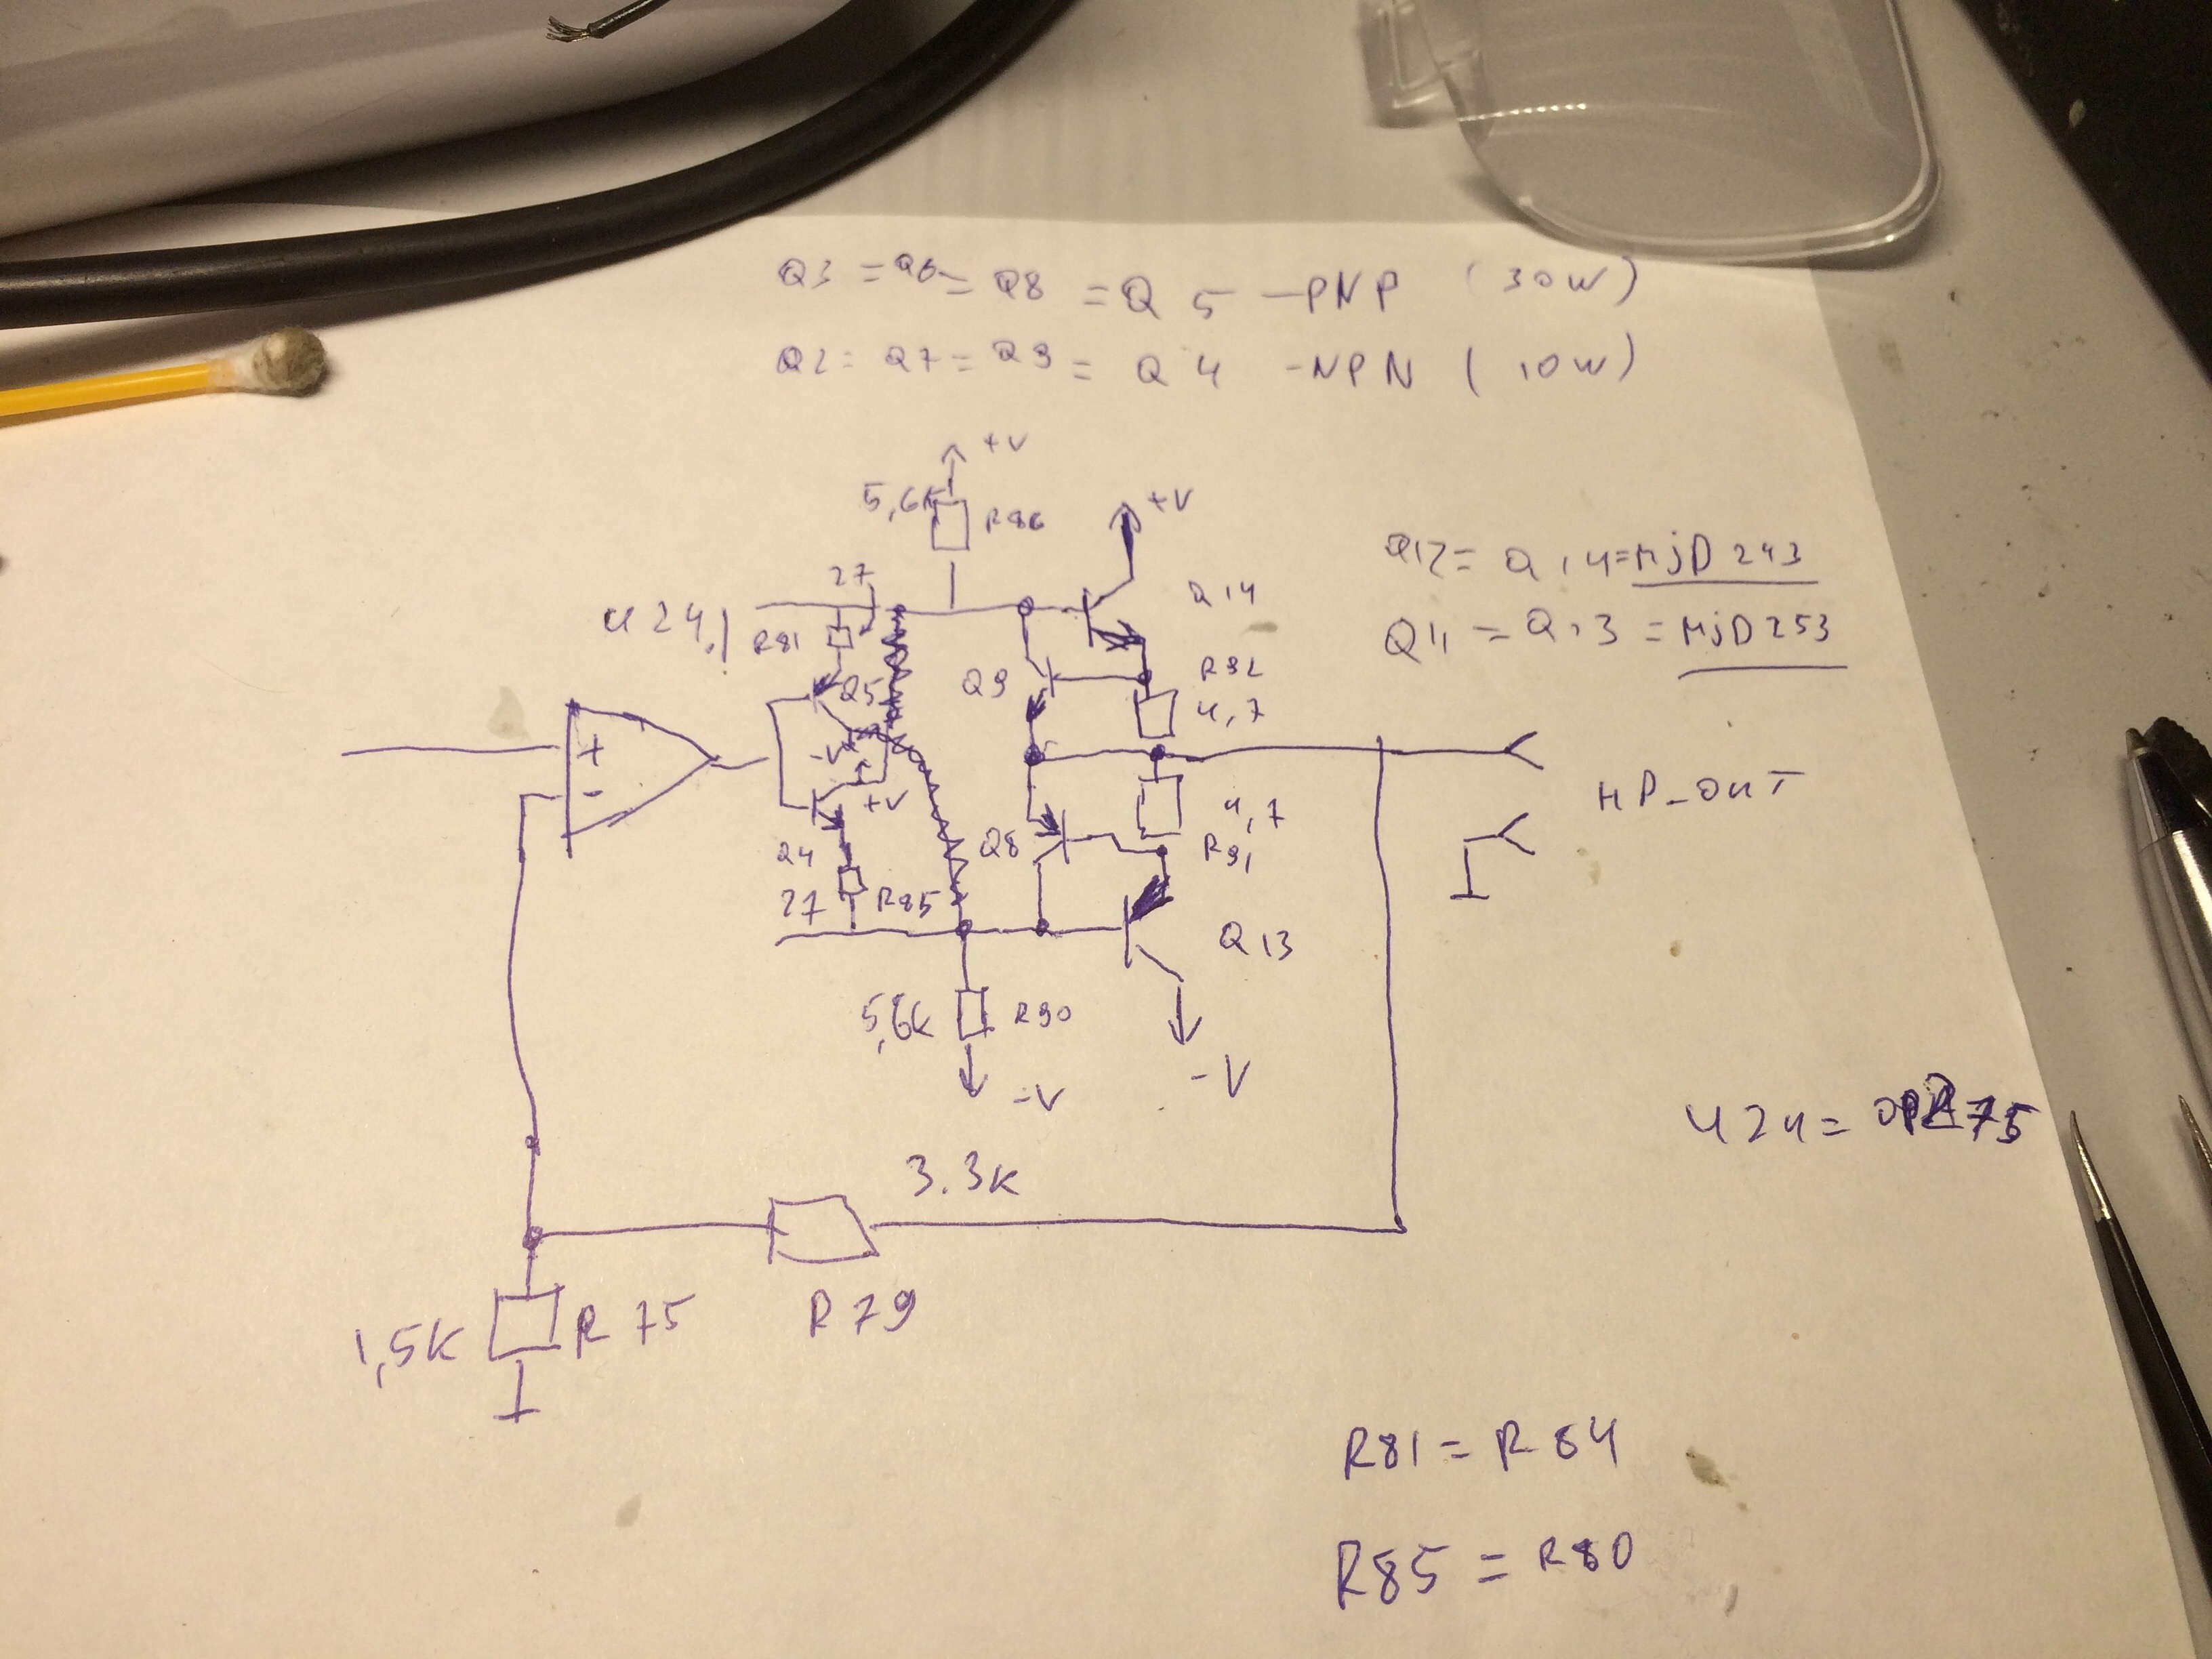 Q3 = Q6 = Q8 = Q 5 - PNP (30W)
Q2 = Q7 = Q9 = Q 4 - NPN (10W)
+V
5,6K R86
+V
27
Q14
Q12 = Q14 = MjD 243
U24.1
R81
Q11 = Q13 = MjD253
Q5
Q9
R92
4,7
+
-V
-
+V
HP_OUT
4,7
Q4
Q8
R91
27 R85
Q13
5,6K R90
-V
-V
U24 = OP275
3.3K
1,5K R75
R79
R81 = R84
R85 = R80